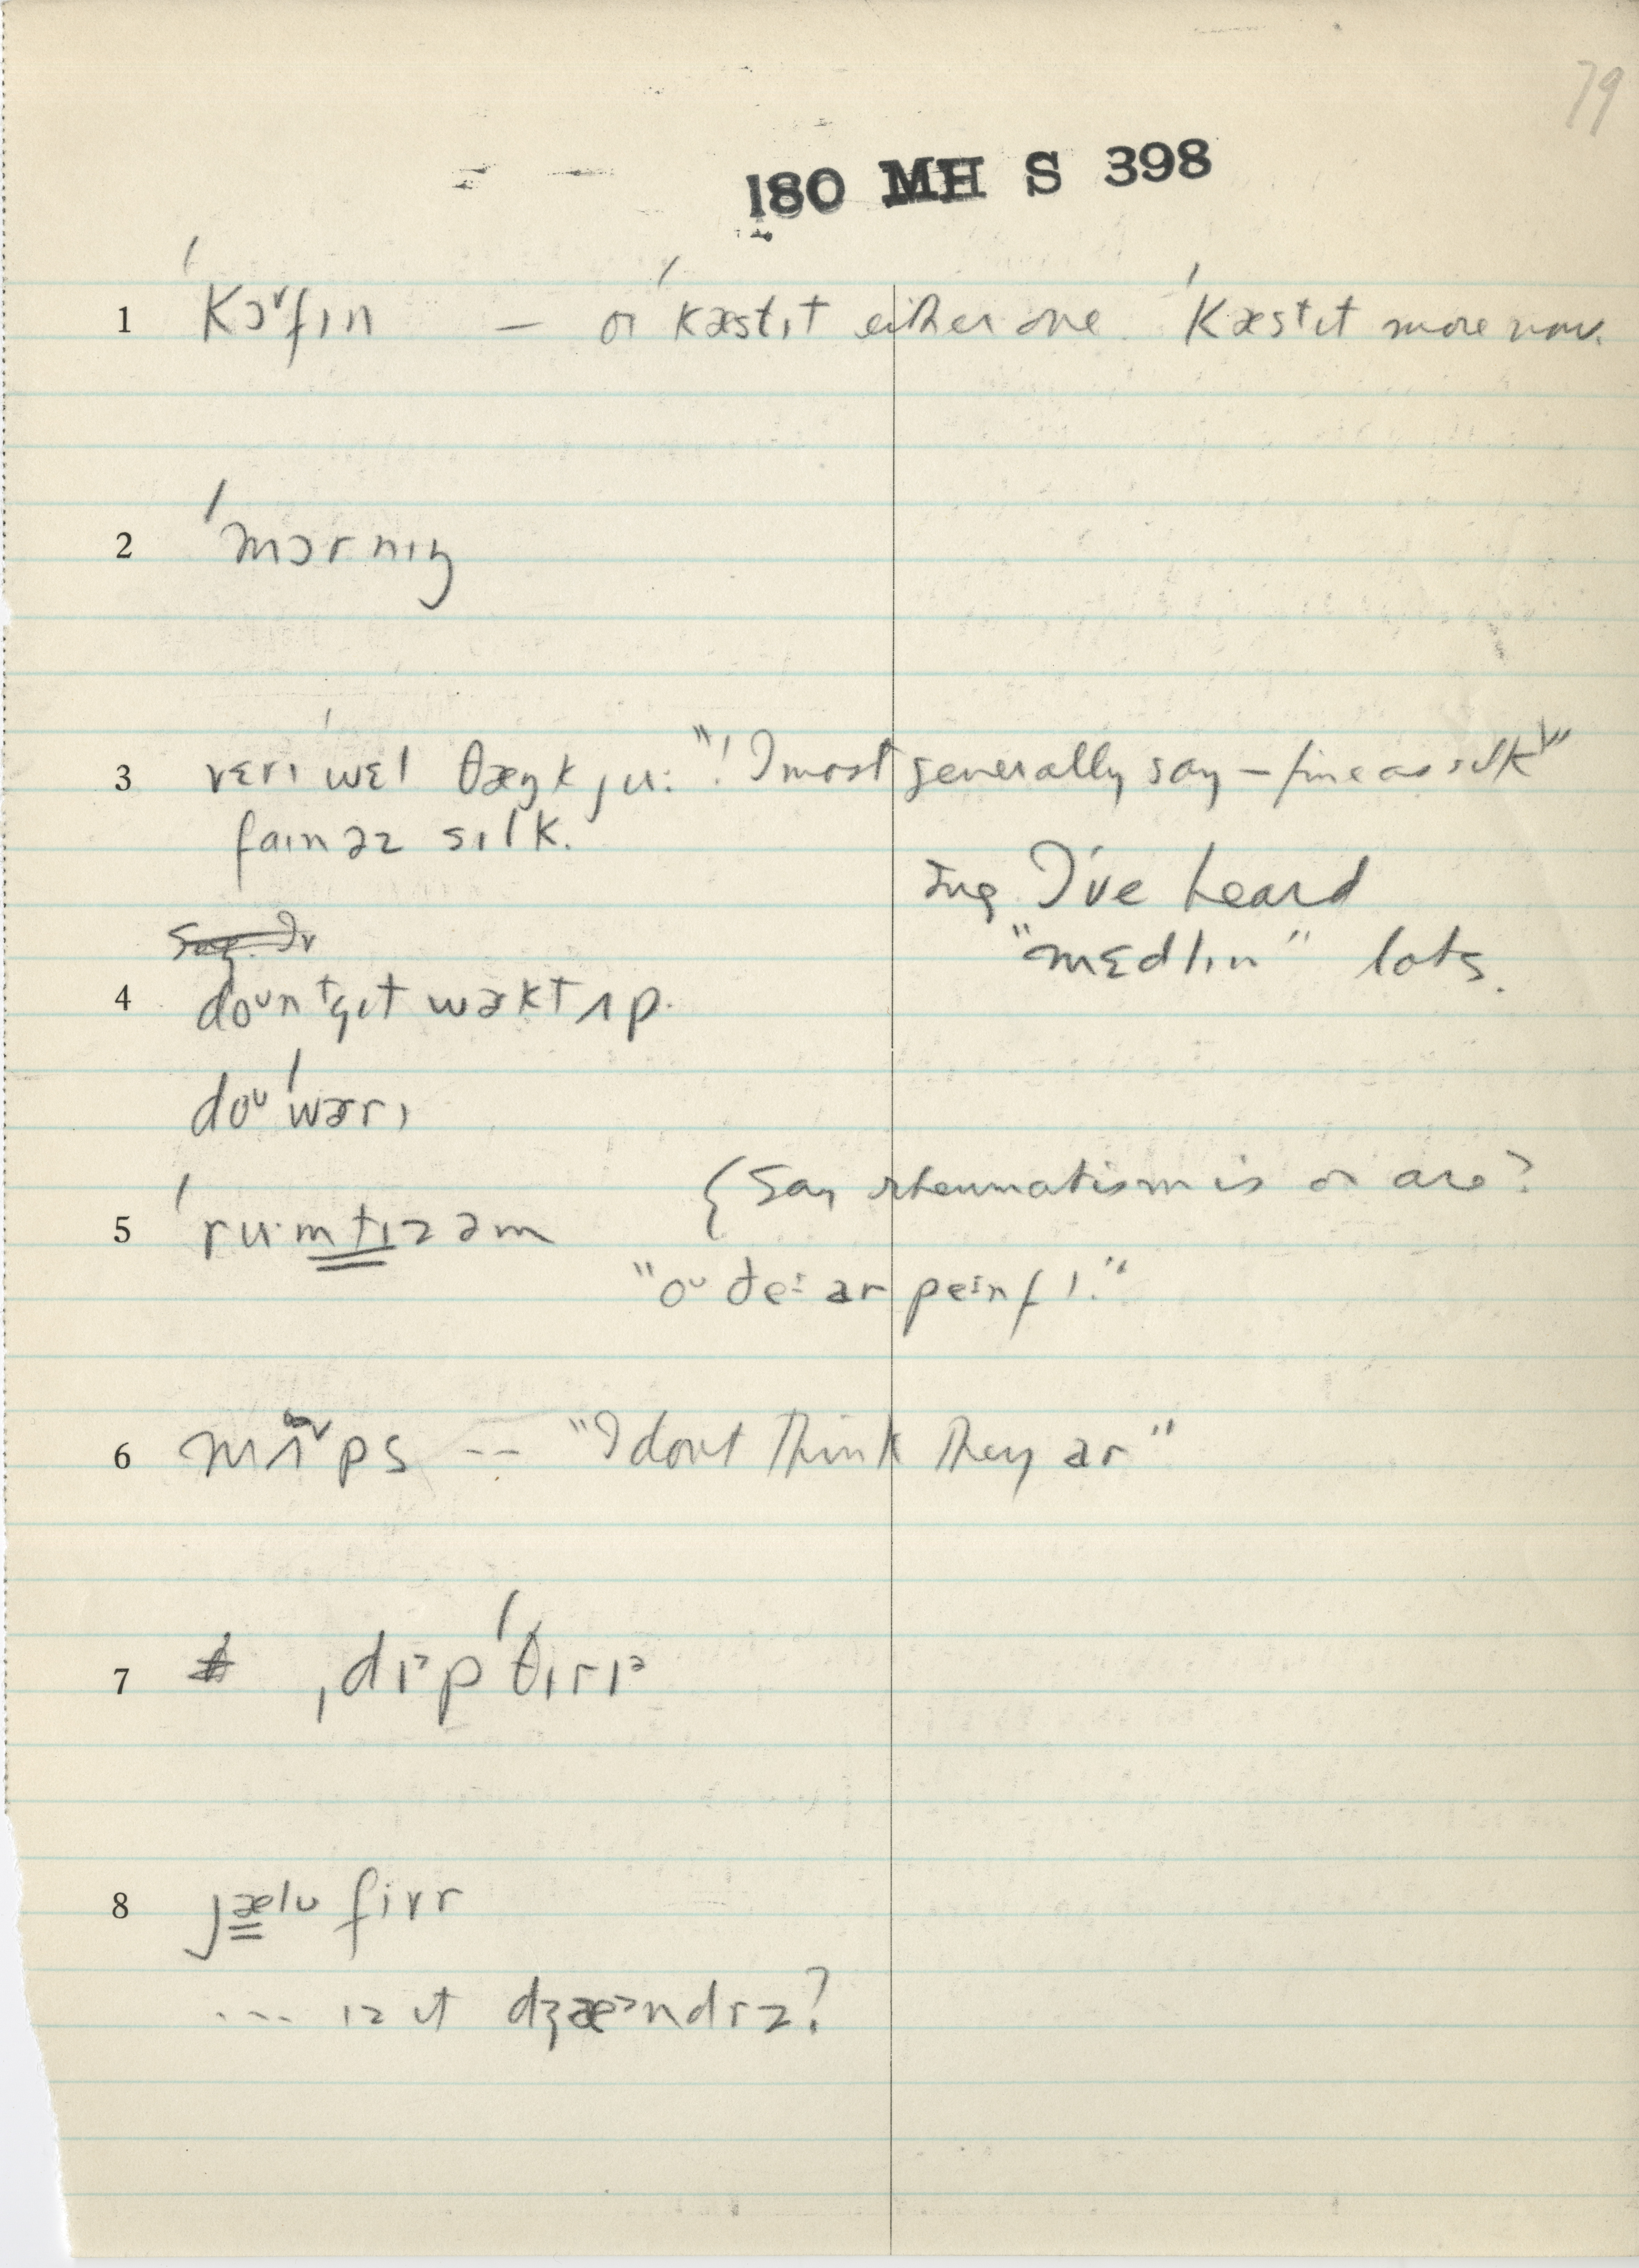 79
180 MH S 398
1 ˈkɔˇfɪn — or ˈkæskɪt either one. ˈkæskɪt more now.
2 ˈmɔrnɪŋ
3 vɛrɪ ˈwɛl θæŋk ju: "! I most generally say – fine as silk"
faɪn əz sɪlk.
I've heard
"mɛdlɪn" lots.
4 doᴜnt gɪt wɚkt ʌp.
doᴜ ˈwɚrɪ
5 ˈruːmtɪzəm {Say rheumatism is or are?
"oᴜ ðeɪ ar peɪnfl."
6 mʌˇps -- "I dont think they ar"
7 ˌdɪᵊpˈθɪrɪᵊ
8 jælᴜ fivr
... ɪz ɪt dʒæᵊndrz?